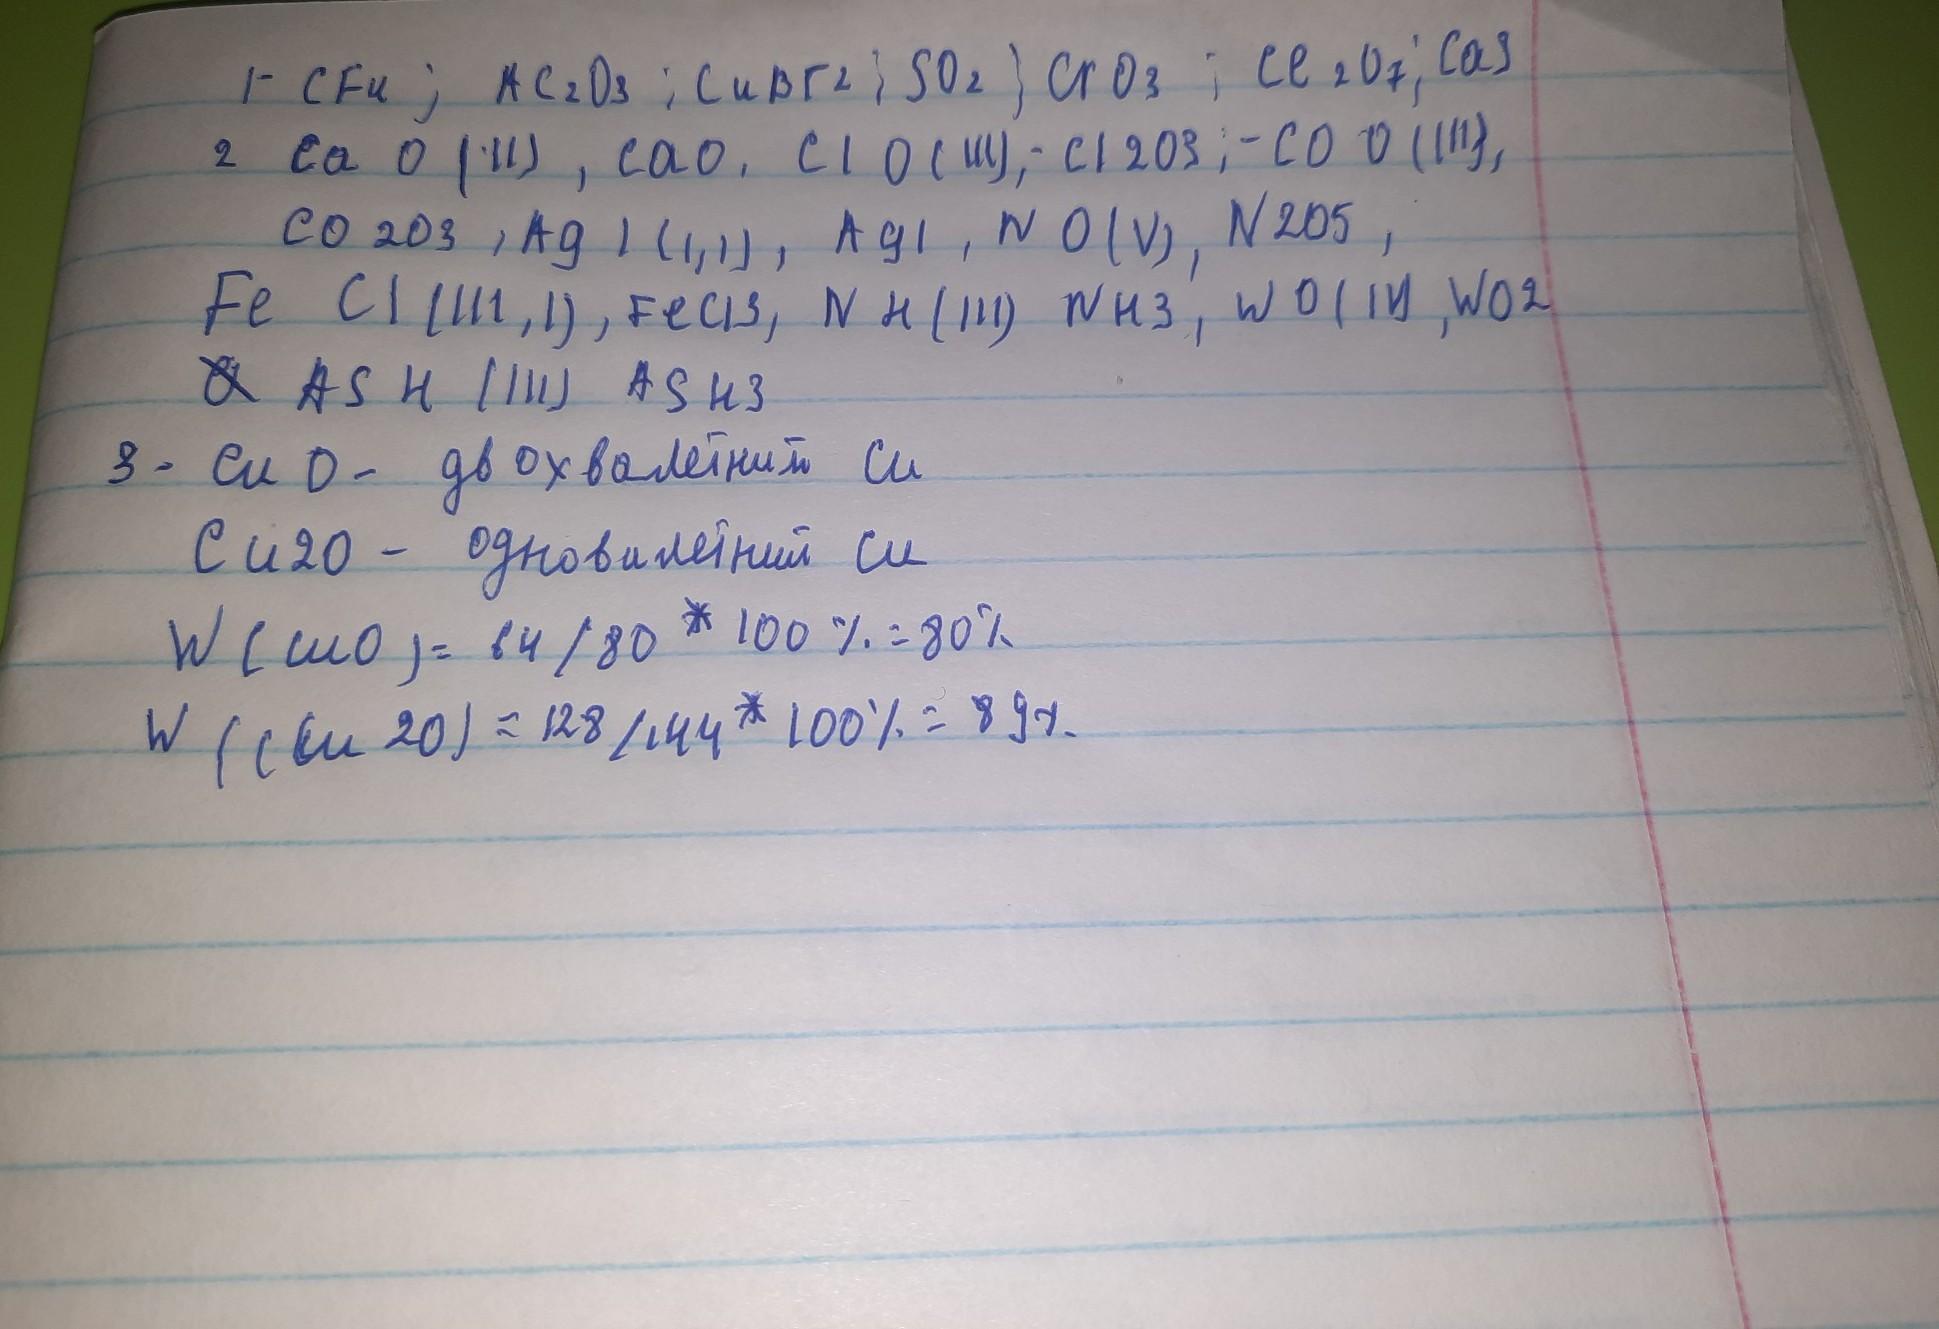 1- CF4 ; AC2O3 ; CuBr2 ; SO2 ; CrO3 ; Ce2O7 ; CaS
2 Ca O (II) , CaO , Cl O (III) ; - Cl2O3 ; - CO O (III),
CO2O3 , Ag I (I,I) , AgI , N O (V) , N2O5 ,
Fe Cl (III, I) , FeCl3 , N H (III) NH3 , W O (IV) , WO2
ASH (III) ASH3
3 - Cu O - двохвалетний Cu
Cu2O - одновалетний Cu
W (CuO) = 64 / 80 * 100 % = 80%
W (Cu2O) = 128 / 144 * 100% = 89%